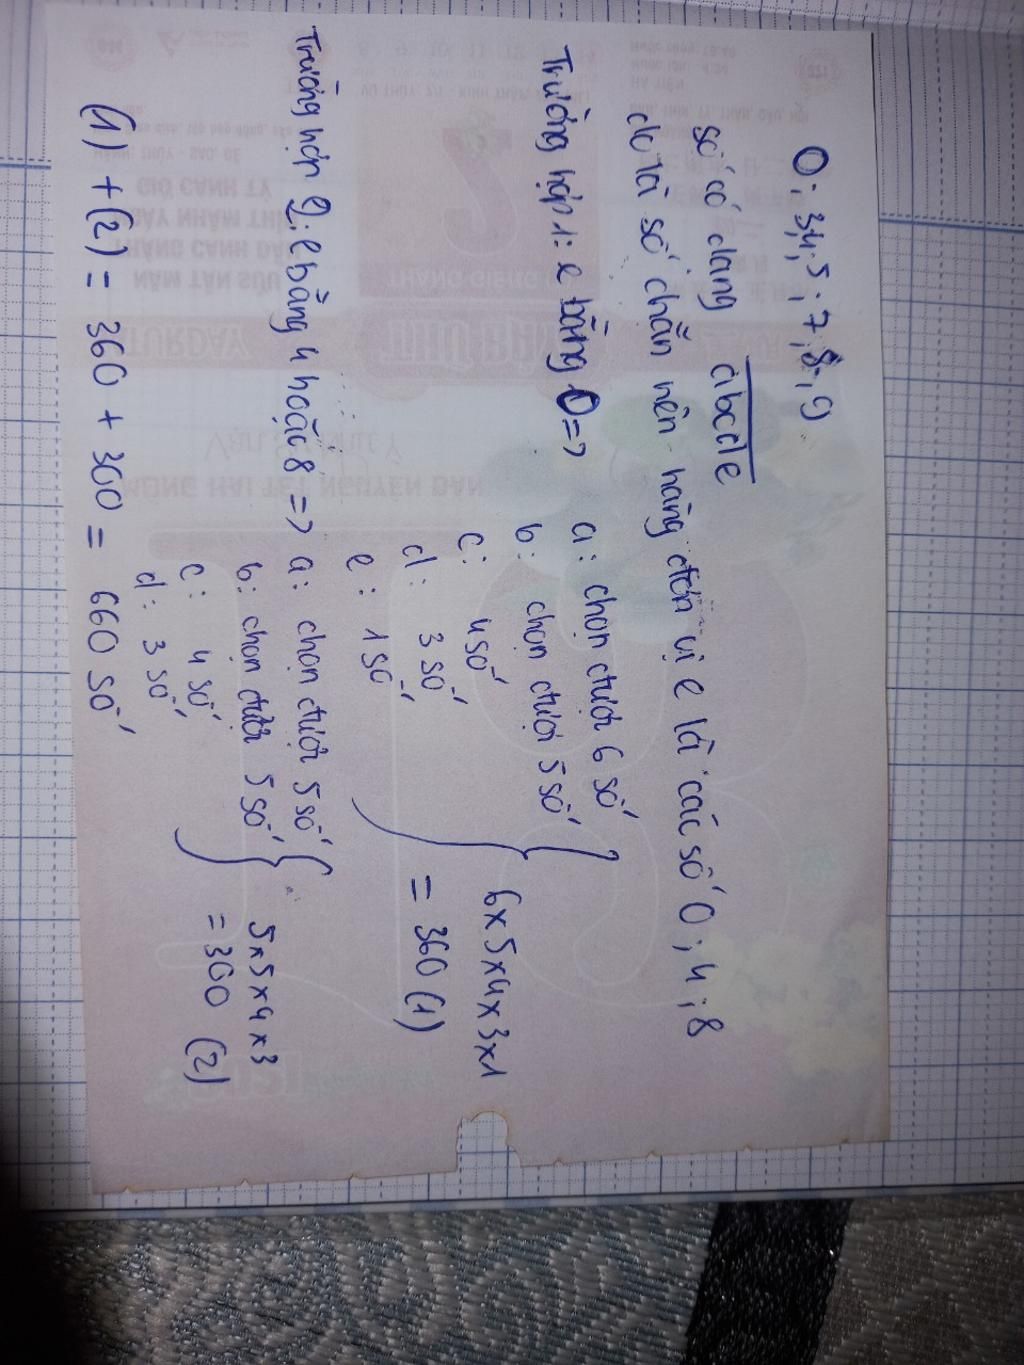 0; 3; 4; 5; 7; 8; 9
số có dạng abcde
do là số chẵn nên hàng đơn vị e là các số 0; 4; 8
Trường hợp 1: e bằng 0 =>
a: chọn được 6 số
b: chọn được 5 số
c: 4 số
d: 3 số
e: 1 số
6 x 5 x 4 x 3 x 1
= 360 (1)
Trường hợp 2: e bằng 4 hoặc 8 =>
a: chọn được 5 số
b: chọn được 5 số
c: 4 số
d: 3 số
5 x 5 x 4 x 3
= 300 (2)
(1) + (2) = 360 + 300 = 660 số